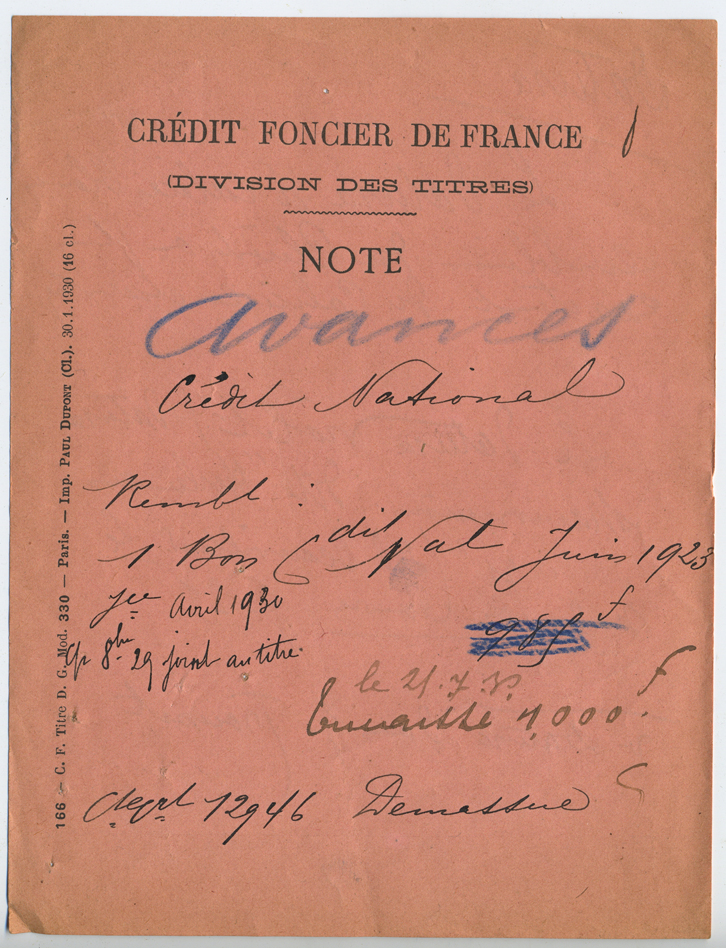 CRÉDIT FONCIER DE FRANCE
(DIVISION DES TITRES)
NOTE
Avances
Crédit National
Rembt :
1 Bon Cdit Nat Juin 1923
Jce Avril 1930
985 f
Cp 8bre 29 joint au titre.
le 21.7.30
Encaissé 1,000 f.
dépt 12946 Demassue
166 — C. F. Titre D. G. Mod. 330 — Paris. — Imp. PAUL DUPONT (Cl.). 30.1.1930 (16 cl.)